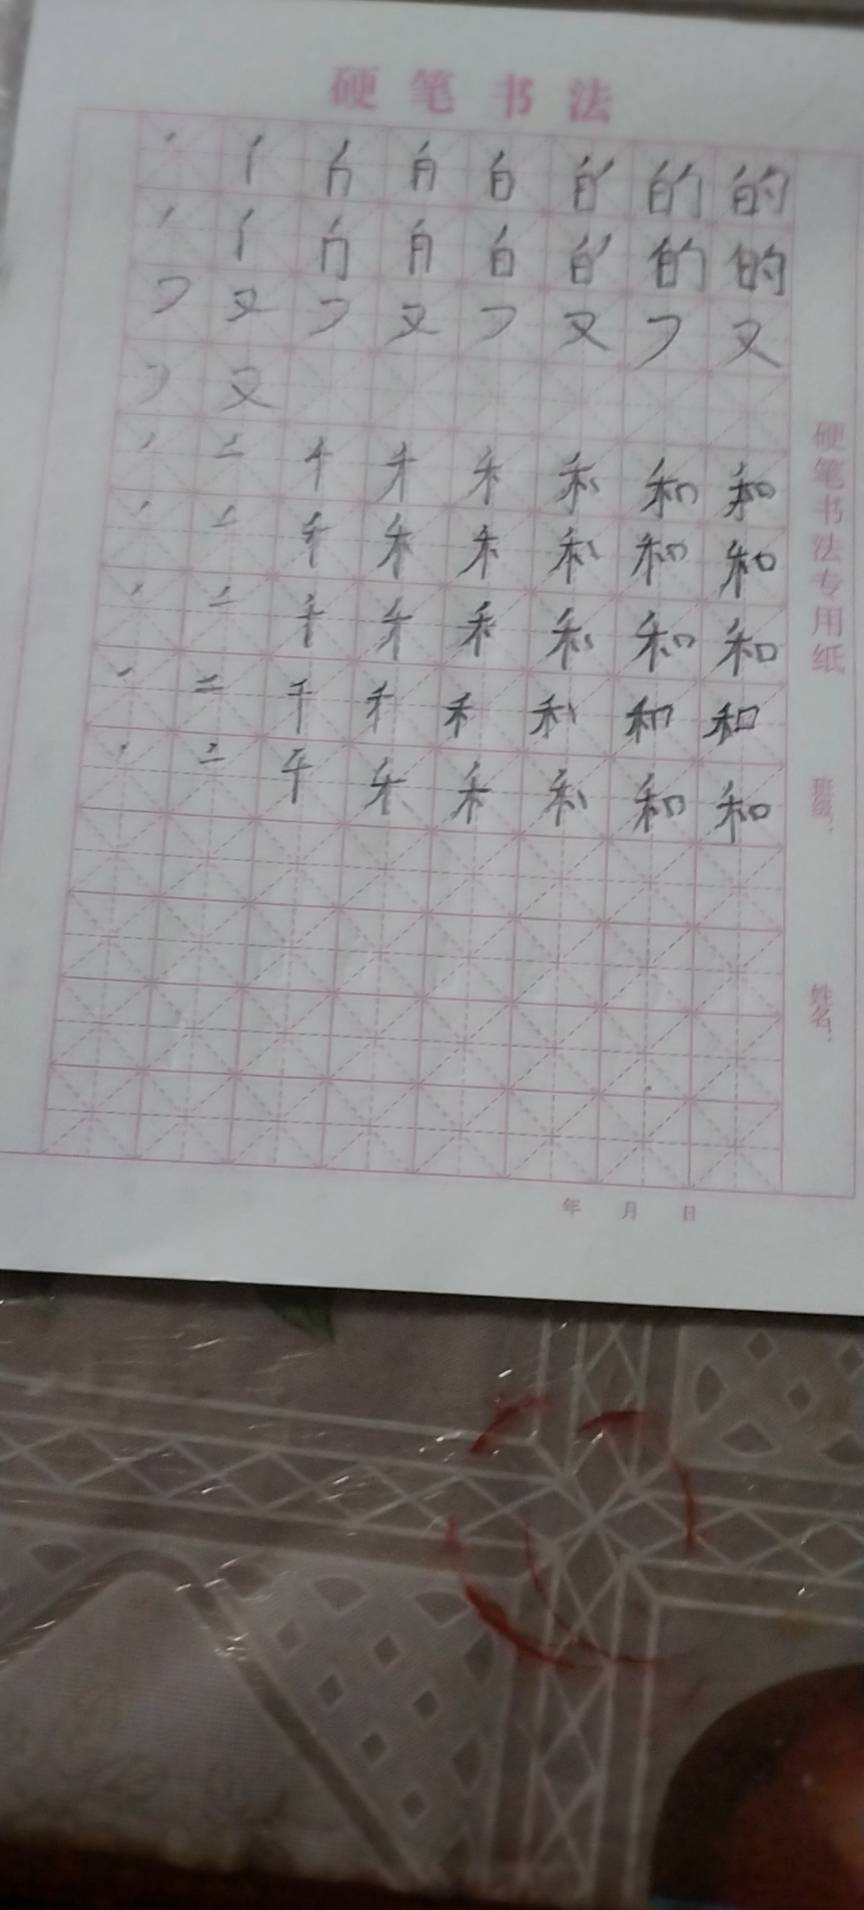 硬笔书法
丶 亻 白 白 白 的 的 的
丿 亻 白 白 白 的 的 的
フ 又 フ 又 フ 又 フ 又
フ 又
丿 二 千 禾 禾 和 和 和
丿 二 千 禾 禾 和 和 和
丿 二 千 禾 禾 和 和 和
丿 二 千 禾 禾 和 和 和
丿 二 千 禾 禾 和 和 和
硬笔书法专用纸
班级：
姓名：
年 月 日